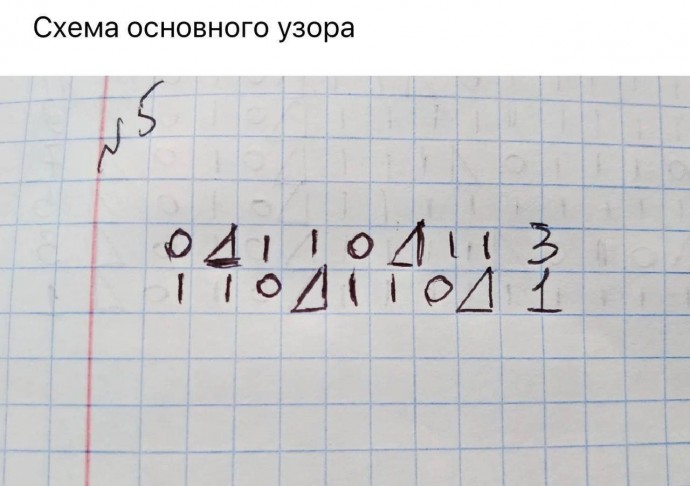 Схема основного узора
№5
0 ⊿ 1 1 0 ⊿ 1 1 3
1 1 0 ⊿ 1 1 0 ⊿ 1